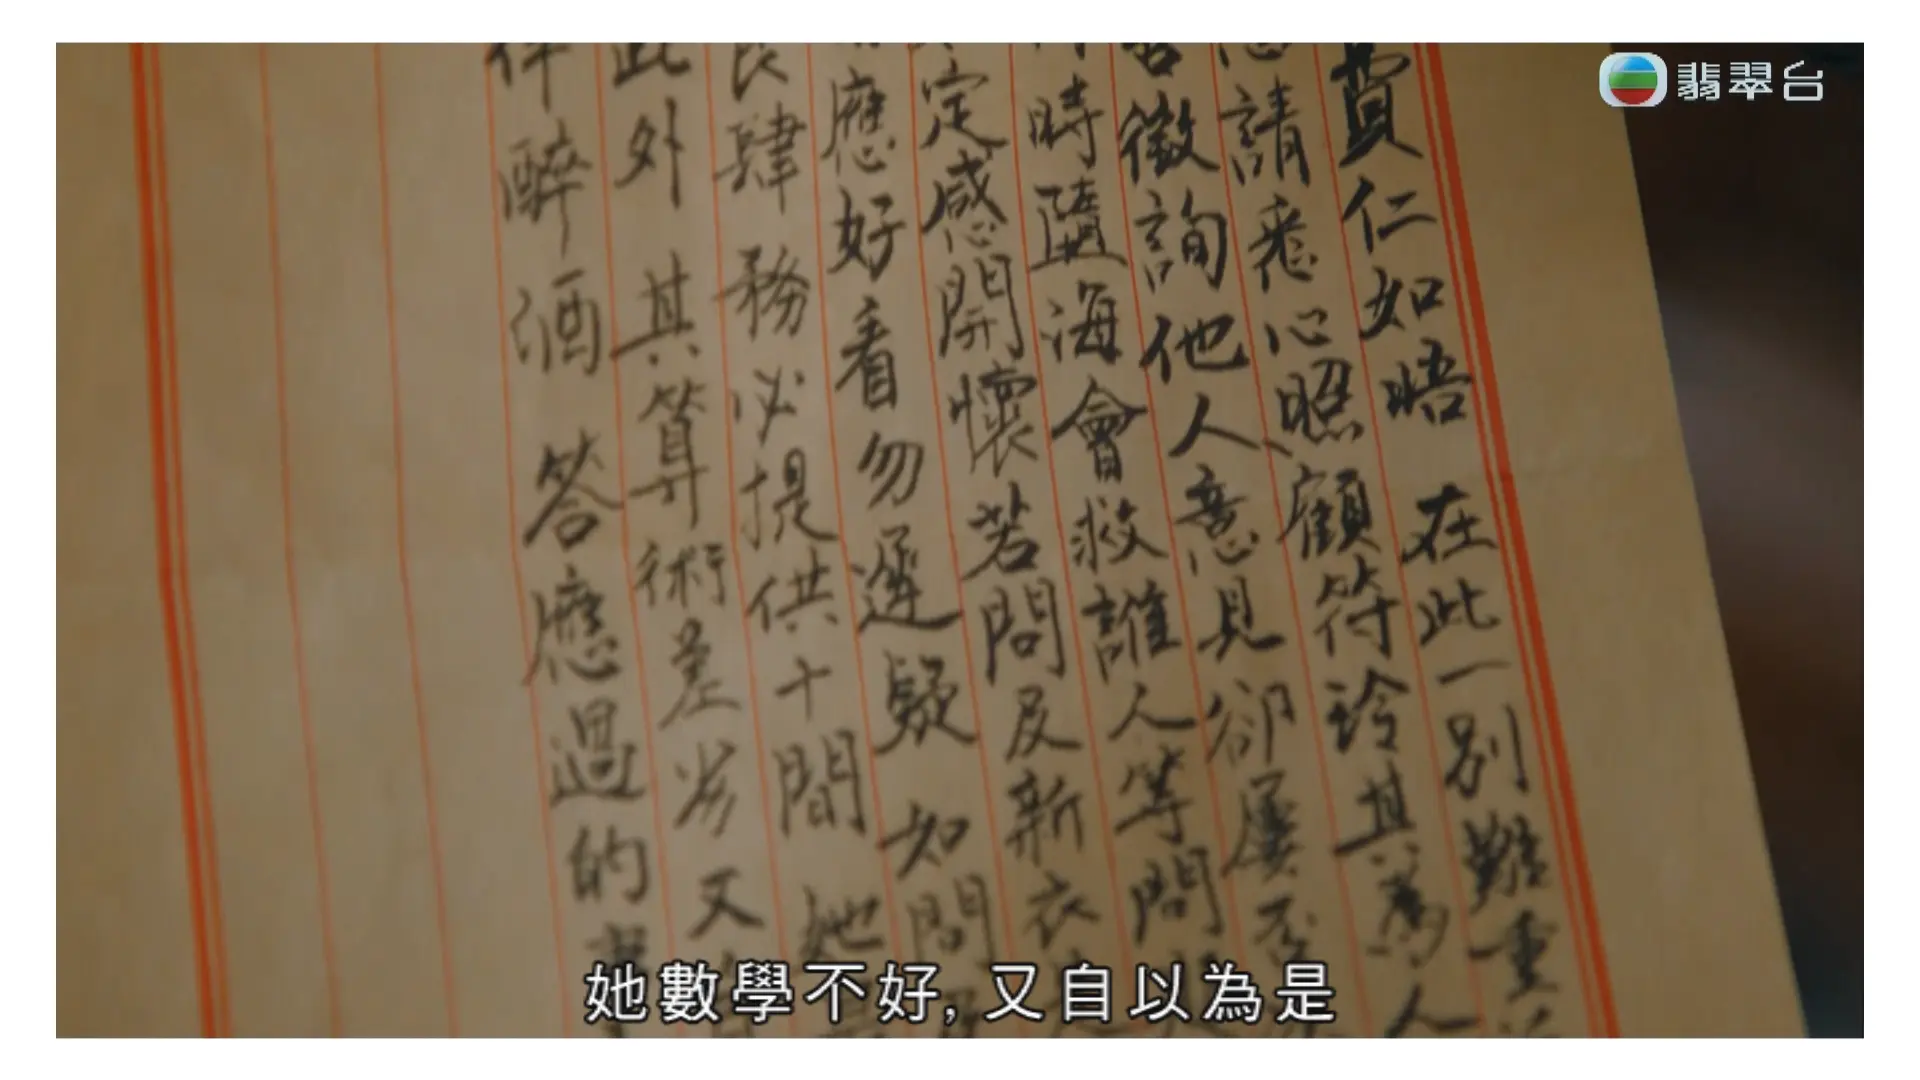 翡翠台
仁如晤 在此一別難重
請悉心照顧符玲其為人
徵詢他人意見卻屢
時墮海會救誰人等問
定感開懷若問及新衣
應好看勿遲疑 如問
肆務必提供十間 她
此外 其算術差劣又
醉酒 答應過的事
她數學不好, 又自以為是